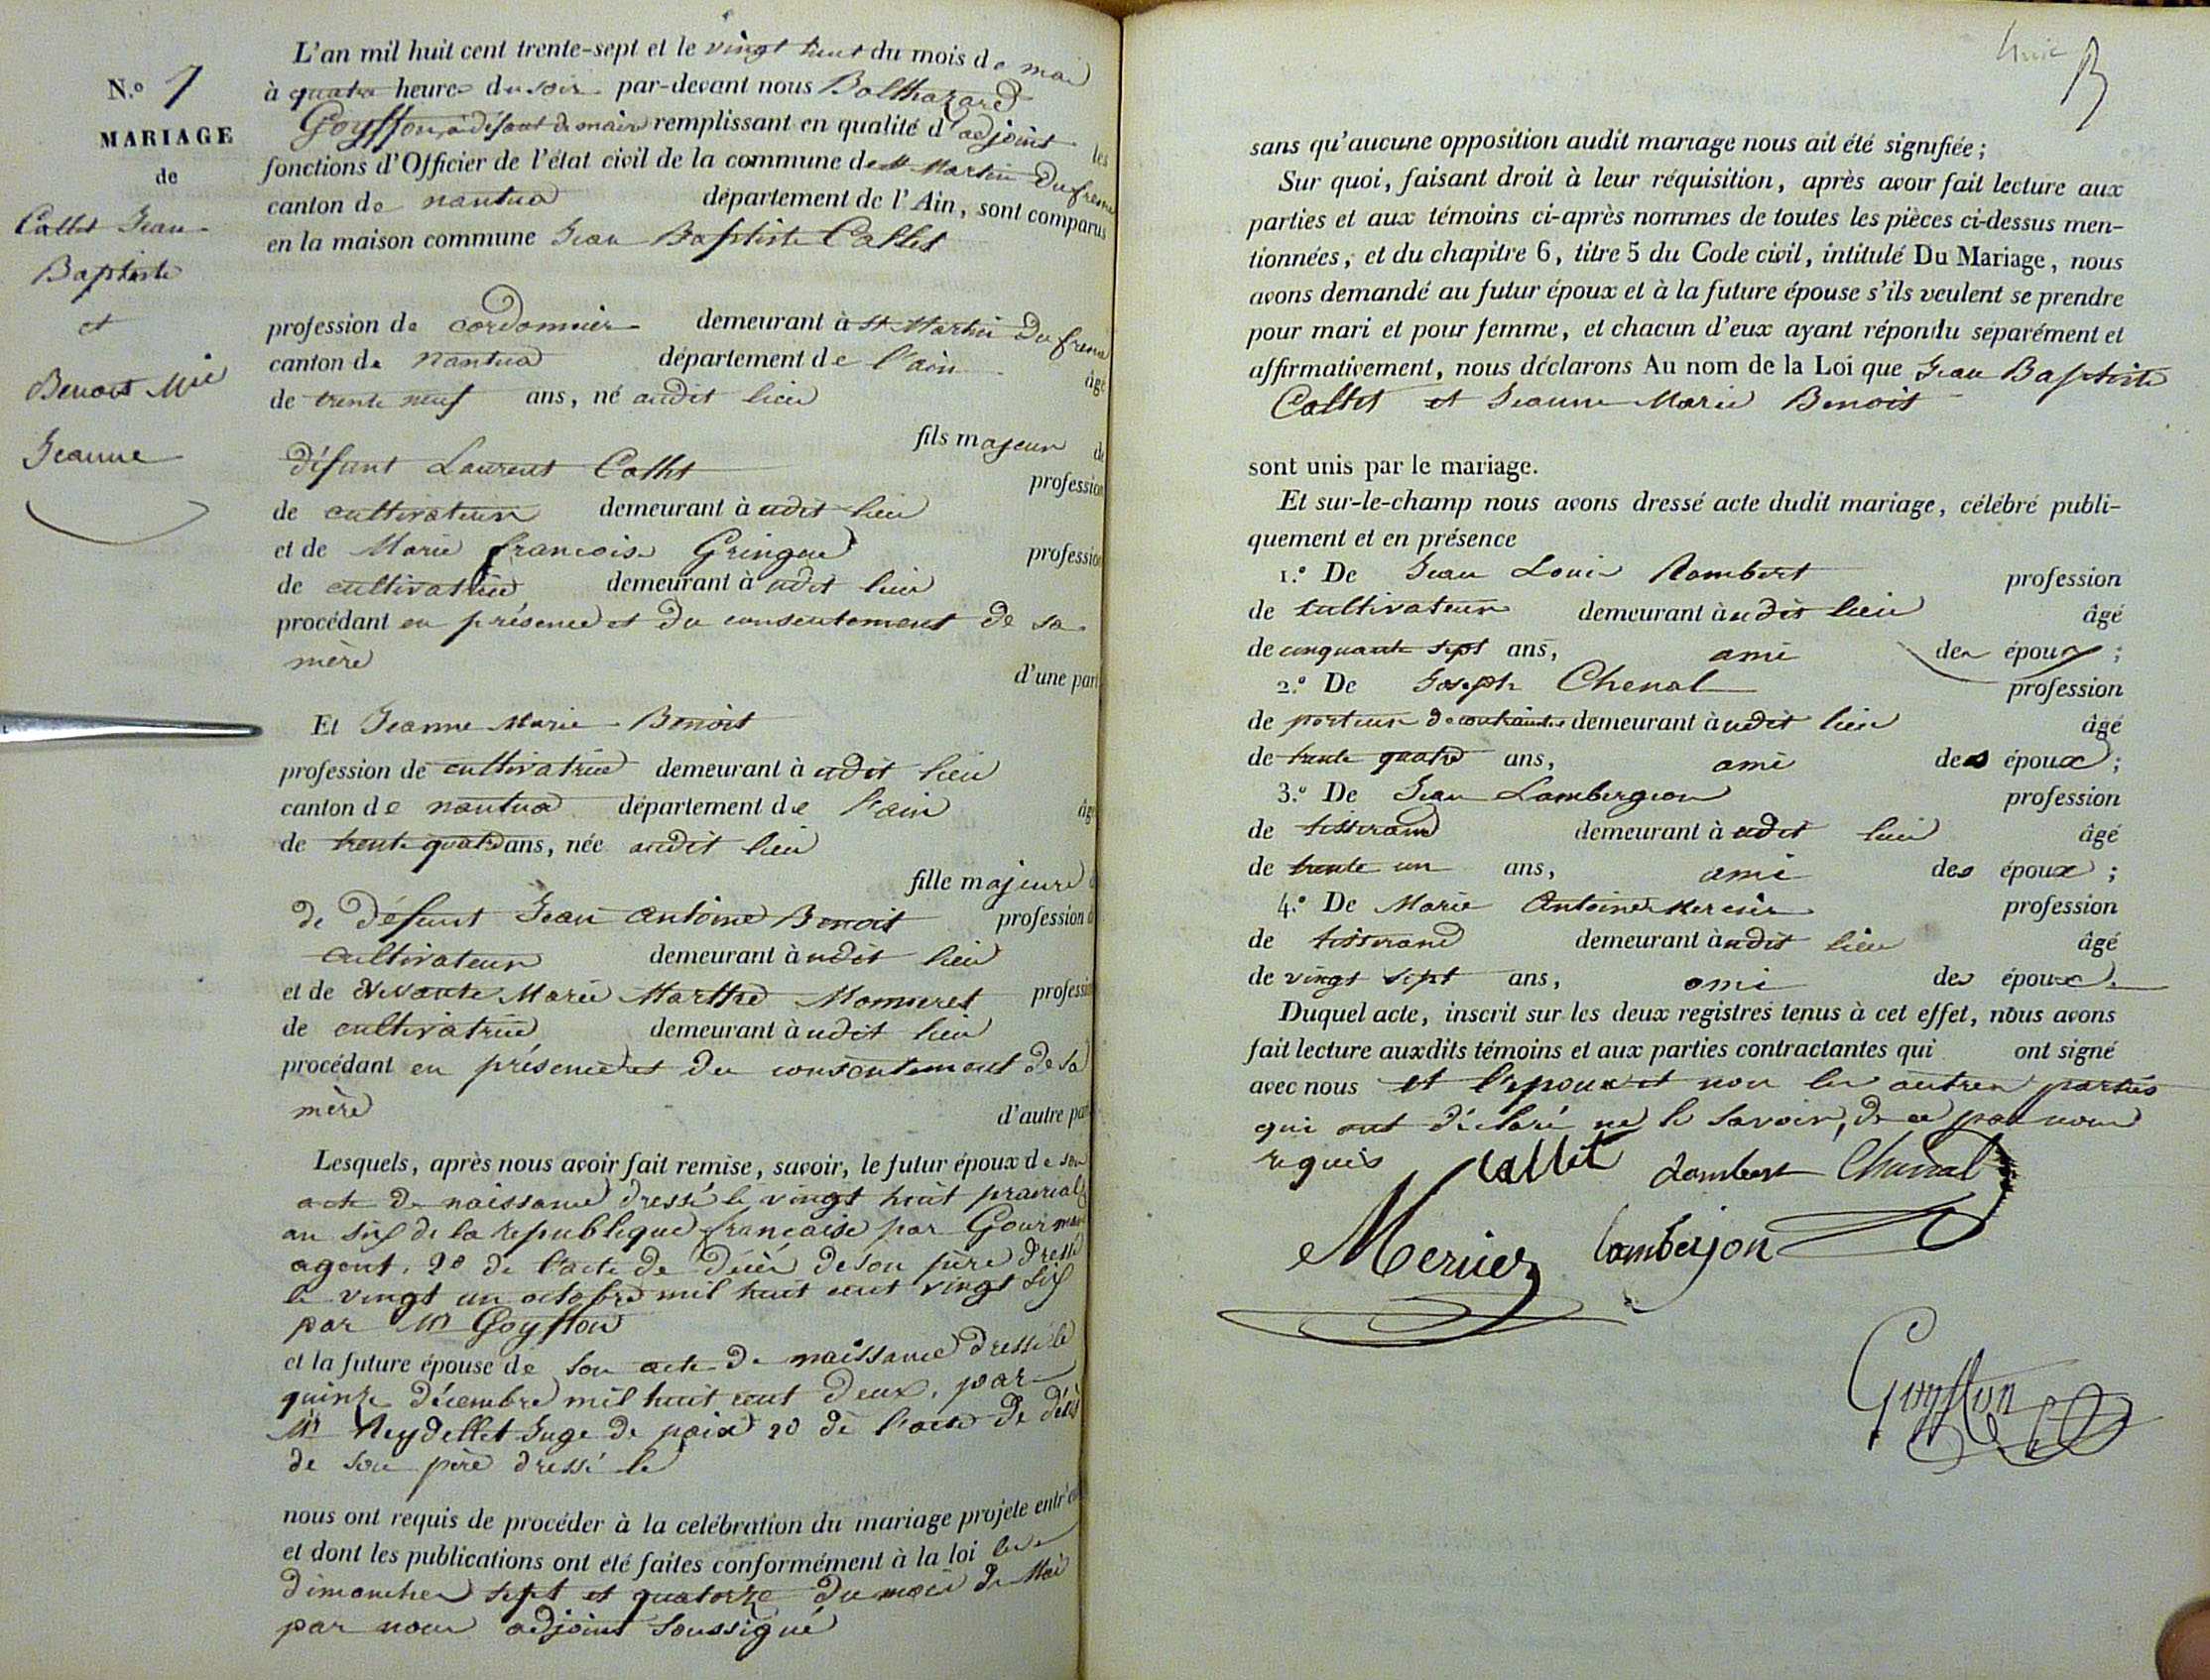 N.o 7
MARIAGE
de
Callet Jean
Baptiste
et
Benoit Mie
Jeanne
L'an mil huit cent trente-sept et le vingt huit du mois de mai
à quatre heures du soir par-devant nous Balthazard
Goyffon, à défaut de maire remplissant en qualité d'adjoint les
fonctions d'Officier de l'état civil de la commune de St Martin Dufrene
canton de nantua département de l'Ain, sont comparus
en la maison commune Jean Baptiste Callet
profession de cordonnier demeurant à St Martin Dufrene
canton de Nantua département de l'ain âgé
de trente neuf ans, né audit lieu
fils majeur de
défunt Laurent Callet profession
de cultivateur demeurant à udit lieu
et de Marie francoise Gringue profession
de cultivatrice demeurant à udit lieu
procédant en présence et du consentement de sa
mère
d'une part
Et Jeanne Marie Benoit
profession de cultivatrice demeurant à udit lieu
canton de nantua département de l'ain âgé
de trente quatre ans, née audit lieu
fille majeure
de défunt Jean antoine Benoit profession d
cultivateur demeurant à udit lieu
et de vivante Marie Marthe professio
de cultivatrice demeurant à udit lieu
procédant en présence et du consentement de sa
mère
d'autre part
Lesquels, après nous avoir fait remise, savoir, le futur époux de son
acte de naissance dressé le vingt huit prairial
an six de la republique francaise par
agent. 2o de l'acte de décès de son père dressé
le vingt un octobre mil huit cent vingt six
par Mr Goyffon
et la future épouse de son acte de naissance dressé le
quinze décembre mil huit cent deux, par
Mr Neydellet Juge de paix 2o de l'acte de décès
de son père dressé le
nous ont requis de procéder à la celébration du mariage projeté entr'eux
et dont les publications ont été faites conformément à la loi les
dimanches sept et quatorze du mois de Mai
par nous adjoint soussigné
sans qu'aucune opposition audit mariage nous ait été signifiée;
Sur quoi, faisant droit à leur réquisition, après avoir fait lecture aux
parties et aux témoins ci-après nommes de toutes les pièces ci-dessus men-
tionnées, et du chapitre 6, titre 5 du Code civil, intitulé Du Mariage, nous
avons demandé au futur époux et à la future épouse s'ils veulent se prendre
pour mari et pour femme, et chacun d'eux ayant répondu séparément et
affirmativement, nous déclarons Au nom de la Loi que Jean Baptiste
Callet et Jeanne Marie Benoit
sont unis par le mariage.
Et sur-le-champ nous avons dressé acte dudit mariage, célébré publi-
quement et en présence
1.o De Jean Louis Rambert profession
de cultivateur demeurant à udit lieu âgé
de cinquante sept ans, ami des époux;
2.o De Joseph Chenal profession
de porteur de contraintes demeurant à udit lieu âgé
de trente quatre ans, ami des époux;
3.o De Jean Lambergeon profession
de tisserand demeurant à udit lieu âgé
de trente un ans, ami des époux;
4.o De Marie Antoine Mercier profession
de tisserand demeurant à udit lieu âgé
de vingt sept ans, ami des époux.
Duquel acte, inscrit sur les deux registres tenus à cet effet, nous avons
fait lecture auxdits témoins et aux parties contractantes qui ont signé
avec nous et l'epoux et non les autres parties
qui ont déclaré ne le savoir, de ce par nous
requis Callet Chenal
Mercier Lamberjon
Goyffon